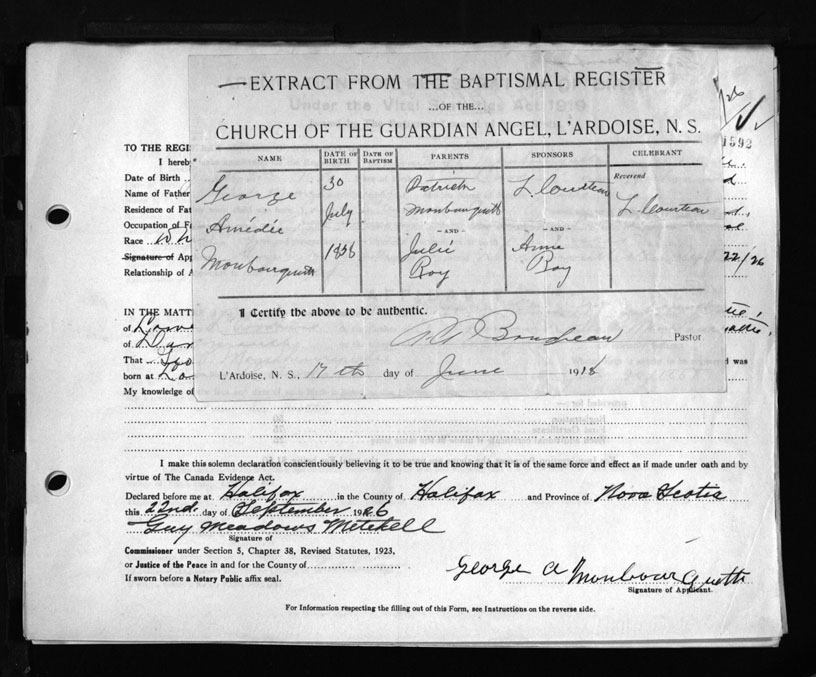 EXTRACT FROM THE BAPTISMAL REGISTER
...OF THE...
CHURCH OF THE GUARDIAN ANGEL, L'ARDOISE, N. S.
NAME DATE OF BIRTH DATE OF BAPTISM PARENTS SPONSORS CELEBRANT
George 30 Patrick Reverend
Amédée July Monbourquette
—AND— —AND—
Monbourquette Julie Anne
Roy Roy
I Certify the above to be authentic.
Pastor
L'Ardoise, N. S., 17th day of June 1918
1592
TO THE REGI
I hereb
Date of Birth
Name of Father
Residence of Fat
Occupation of F
Race
Signature of App
Relationship of A
22/26
IN THE MATT
of
of
That
was
born at
My knowledge of
I make this solemn declaration conscientiously believing it to be true and knowing that it is of the same force and effect as if made under oath and by
virtue of The Canada Evidence Act.
Declared before me at Halifax in the County of Halifax and Province of Nova Scotia
this 22nd day of September 1926
Guy Meadows Mitchell
Signature of
Commissioner under Section 5, Chapter 38, Revised Statutes, 1923,
or Justice of the Peace in and for the County of
If sworn before a Notary Public affix seal.
George A Monbourquette
Signature of Applicant.
For Information respecting the filling out of this Form, see Instructions on the reverse side.